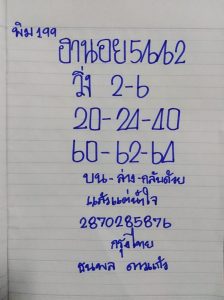 พิม 199
ฮานอย5/6/62
วิ่ง 2-6
20-24-40
60-62-64
บน-ล่าง-กลับด้วย
แล้วแต่น้ำใจ
2870285876
กรุงไทย
ธนพล ดาวแก้ว